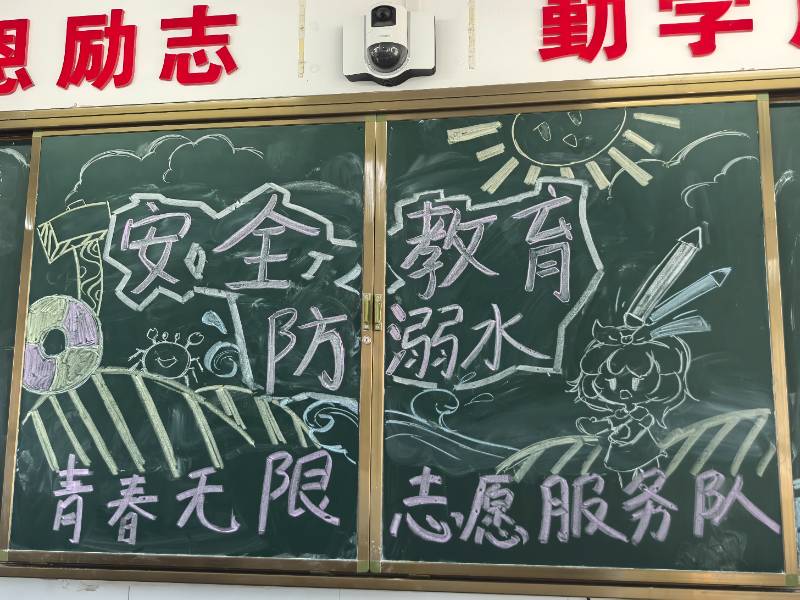 恩励志 勤学
安全教育
防溺水
青春无限 志愿服务队